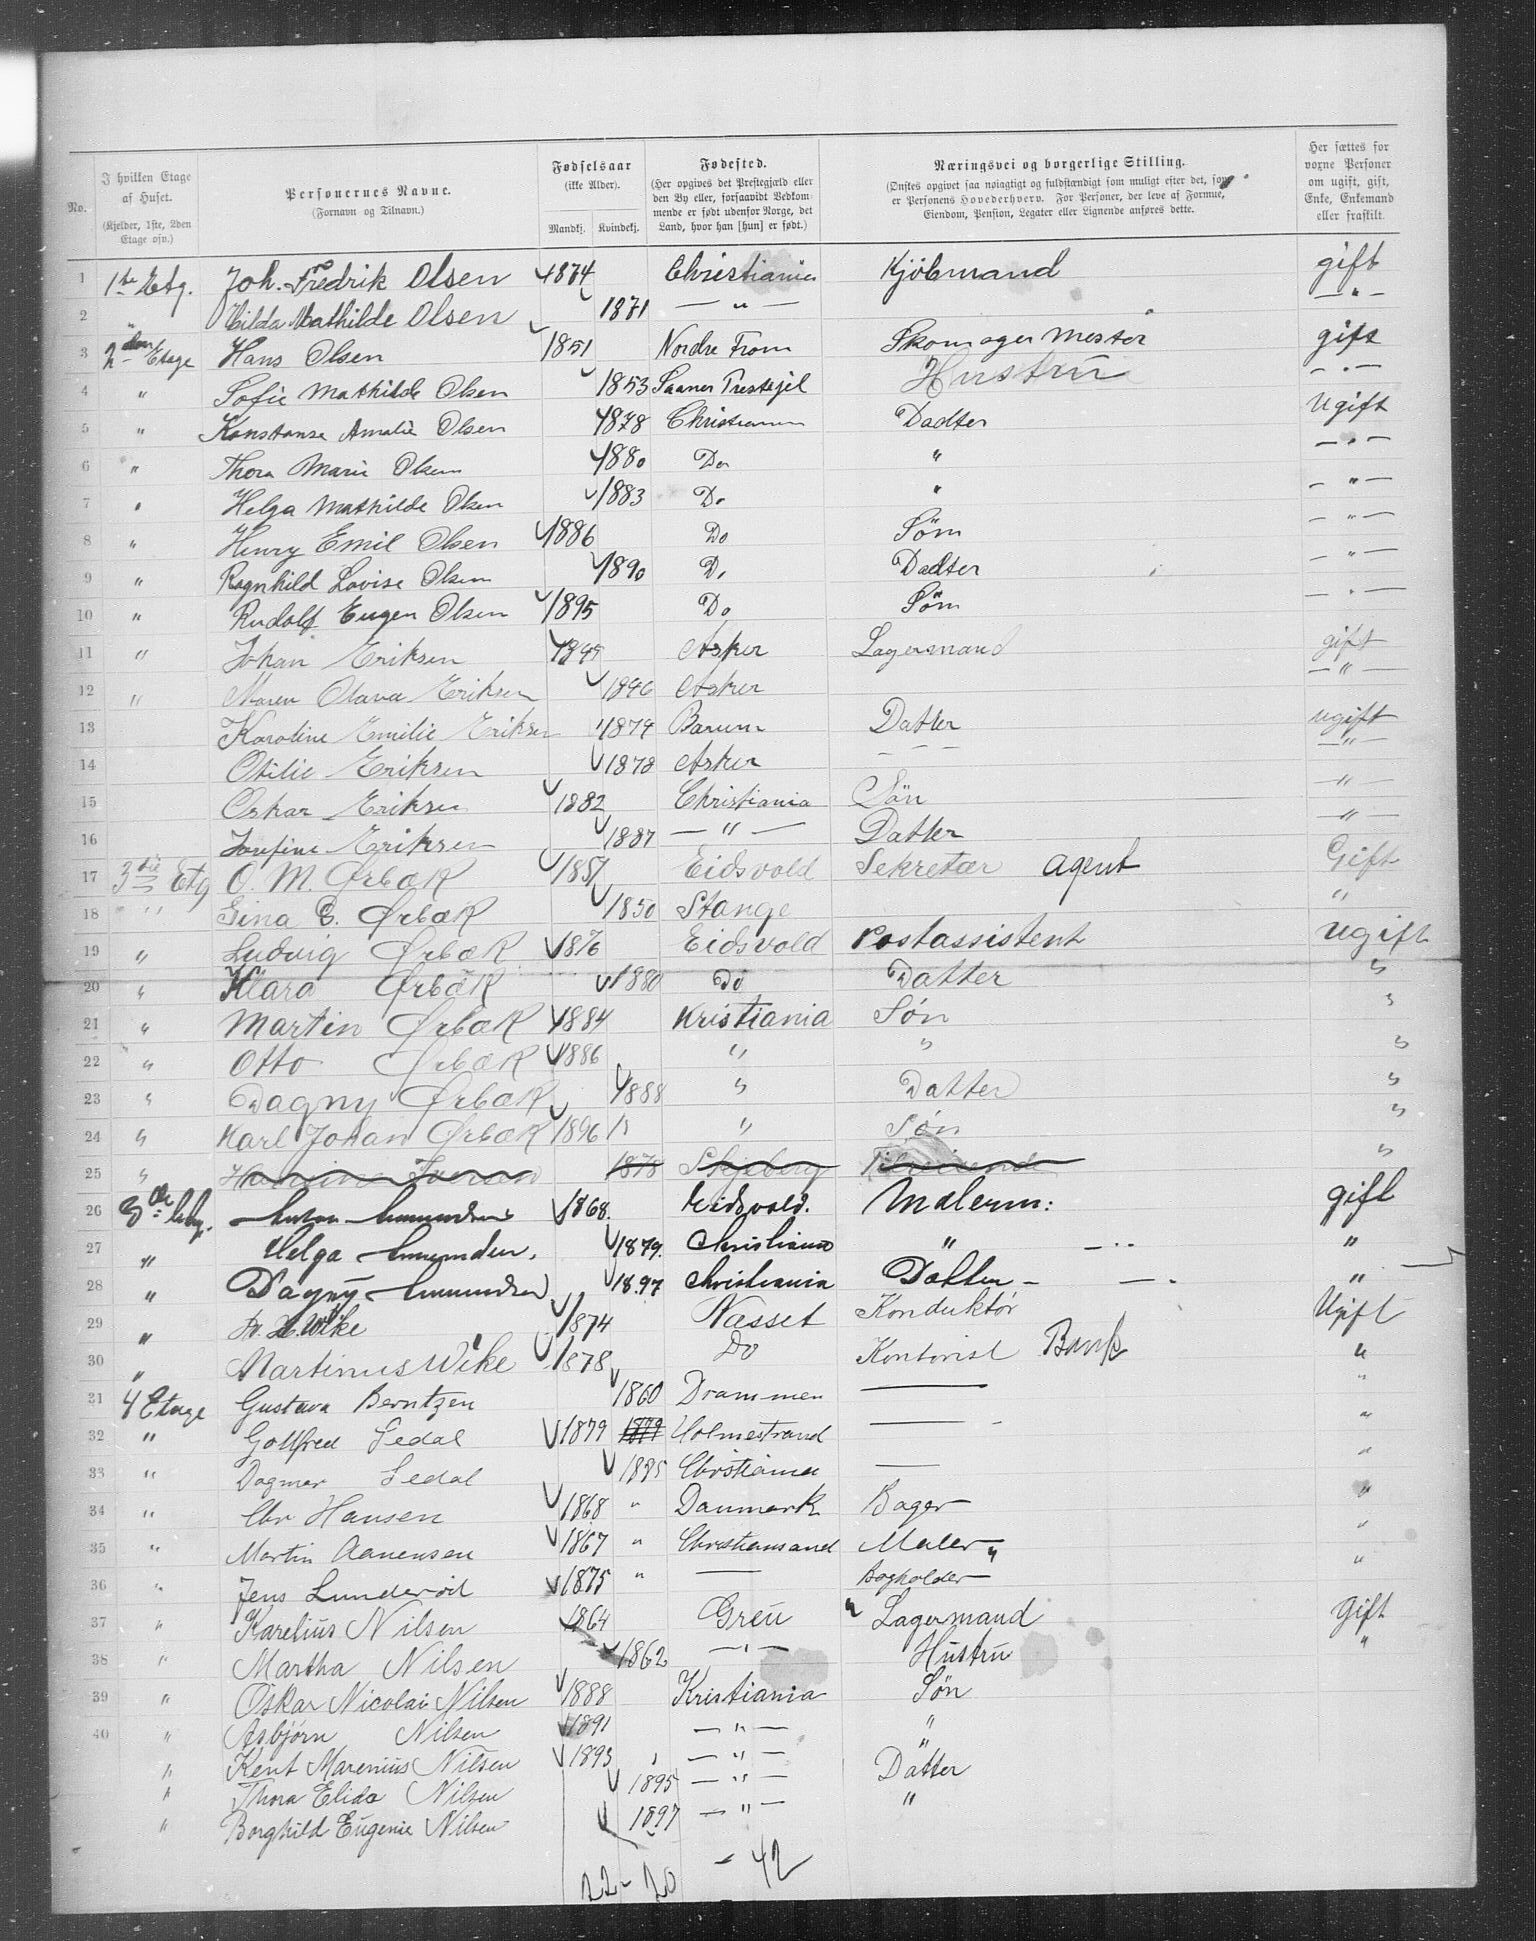 No. | I hvilken Etage af Huset. (Kjelder, 1ste, 2den Etage osv.) | Personernes Navne. (Fornavn og Tilnavn.) | Fødselsaar (ikke Alder). Mandkj. Kvindekj. | Fødested. (Her opgives det Prestegjæld eller den By eller, forsaavidt Vedkommende er født udenfor Norge, det Land, hvor han [hun] er født.) | Næringsvei og borgerlige Stilling. (Ønskes opgivet saa nøiagtigt og fuldstændigt som muligt efter det, som er Personens Hovederhverv. For Personer, der leve af Formue, Eiendom, Pension, Legater eller Lignende anføres dette. | Her sættes for voxne Personer om ugift, gift, Enke, Enkemand eller fraskilt.
1 1ste Etg. Joh. Fredrik Olsen 1874 Christiania Kjöbmand gift
2 " Hilda Mathilde Olsen 1871 — " — — " —
3 2den Etage Hans Olsen 1851 Nordre Fron Skomager Mester gift
4 " Sofie Mathilde Olsen 1853 Hustru — " —
5 " Konstanse Amalie Olsen 1878 Christiania Dadter Ugift
6 " Thora Marie Olsen 1880 Do " — " —
7 " Helga Mathilde Olsen 1883 Do " — " —
8 " Henry Emil Olsen 1886 Do Söm — " —
9 " Ragnhild Lovise Olsen 1890 Do Dadter — " —
10 " Rudolf Eugen Olsen 1895 Do Söm — " —
11 " Johan Eriksen Asker Lagermand gift
12 " Maren Olava Eriksen 1846 Asker — " —
13 Karoline Emilie Eriksen 1874 Barum Datter ugift
14 Otilie Eriksen 1878 Asker — — — — " —
15 Oskar Eriksen 1882 Christiania Sön — " —
16 Josefine Eriksen 1887 — " — Datter — " —
17 3die Etg O. M. Ørbæk 1851 Eidsvold Sekretær Agent Gift
18 " Gina E. Ørbæk 1850 Stange "
19 " Ludvig Ørbæk 1876 Eidsvold Postassistent ugift
20 " Klara Ørbæk 1880 Do Datter "
21 " Martin Ørbæk 1884 Kristiania Søn "
22 " Otto Ørbæk 1886 " " "
23 " Dagny Ørbæk 1888 " Datter "
24 " Karl Johan Ørbæk 1896 " " Søn "
25 " 1878 Skjeberg "
26 3de Etg. Anton Amundsen 1868. Eidsvold. Malerm: gift
27 " Helga Amunden. 1879. Christiania " "
28 " Dagny Amundsen 1897 Christiania Datter "
29 " Wike 1874 Næsset Konduktör Ugift
30 " Martinus Wike 1878 Do Kontorist Bank "
31 4 Etage Gustava Berntzen 1860 Drammen — "
32 " Gottfred Sedal 1879 1879 Holmestrand — "
33 " Dagmar Sedal 1895 Christiania — "
34 " Chr Hansen 1868 " Danmark Bager "
35 " Martin Aanensen 1867 " Christiansand Maler "
36 " Jens Lunderöd 1875 " — Bogholder "
37 " Karelius Nilsen 1864 Greu " Lagermand Gift
38 " Martha Nilsen 1862 — " — Hustru "
39 " Oskar Nicolai Nilsen 1888 Kristiania Søn
40 " Asbjørn Nilsen 1891 — " — "
" Kent Marenius Nilsen 1893 — " — "
" Thora Elida Nilsen 1895 — " — Datter
" Borghild Eugenie Nilsen 1897 — " — "
22 - 20 - 42